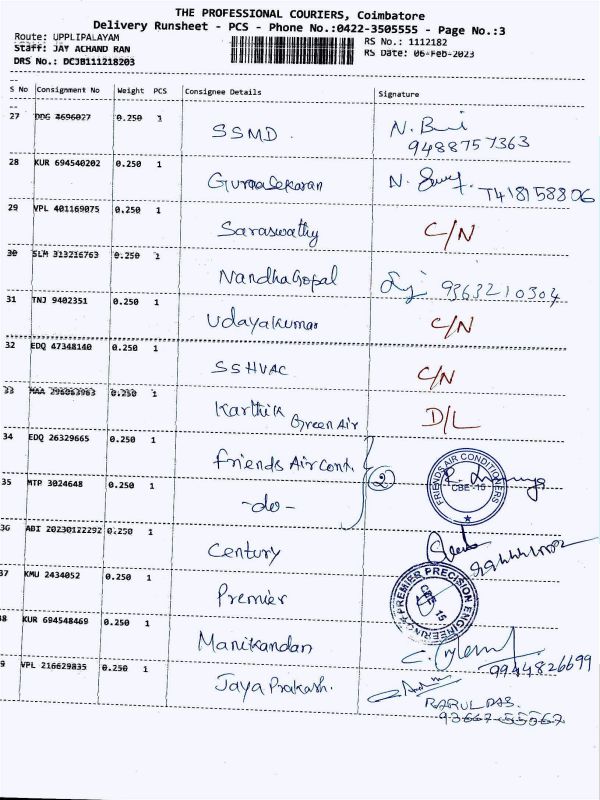 THE PROFESSIONAL COURIERS, Coimbatore
Delivery Runsheet - PCS - Phone No.:0422-3505555 - Page No.:3
Route: UPPLIPALAYAM
RS No.: 1112182
Staff: JAY ACHAND RAN
RS Date: 06-Feb-2023
DRS No.: DCJB111218203
S No Consignment No Weight PCS Consignee Details Signature
27 DDG 4696027 0.250 1 SSMD. N. 9488757363
28 KUR 694540202 0.250 1 N. 7418158806
29 VPL 401169075 0.250 1 Saraswathy C/N
30 SLM 313216763 0.250 1 NandhaGopal 9363210304
31 TNJ 9402351 0.250 1 Udayakumar C/N
32 EDQ 47348140 0.250 1 SSHVAC C/N
33 MAA 296063963 0.250 1 Karthik Green Air D/L
34 EDQ 26329665 0.250 1 Friends Aircont. 2 FRIENDS AIR CONDITIONERS CBE-15
35 MTP 3024648 0.250 1 -do-
36 ABI 20230122292 0.250 1 Century
37 KMU 2434052 0.250 1 Premier PREMIER PRECISION ENGINEERING CBE 15
38 KUR 694548469 0.250 1 Manikandan C. 9944826699
39 VPL 216629835 0.250 1 Jaya Prakash.